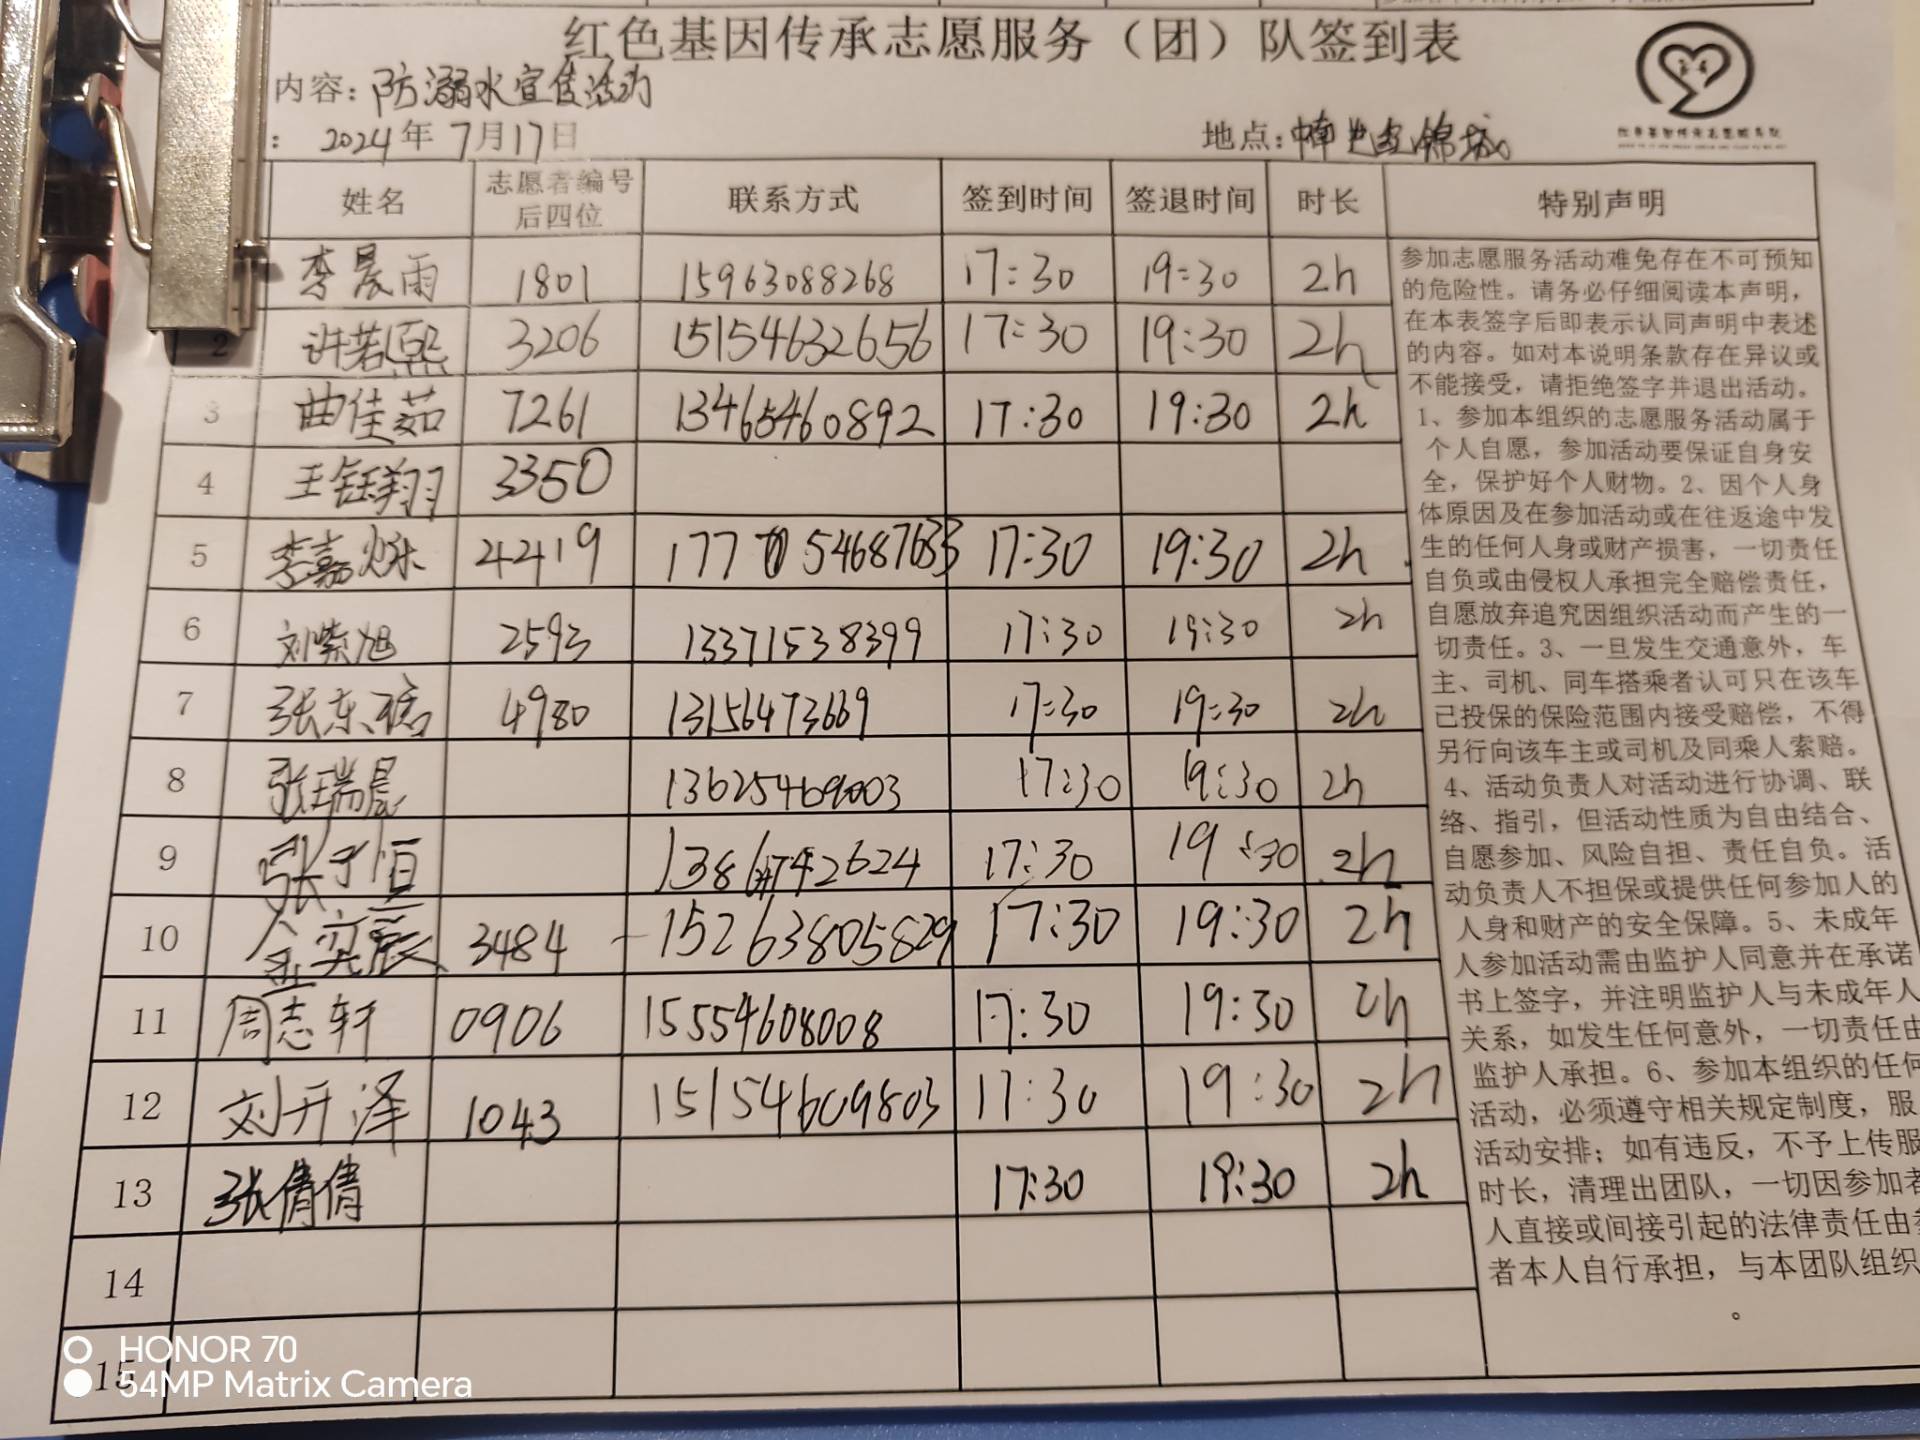 红色基因传承志愿服务（团）队签到表
内容：防溺水宣传活动
：2024年7月17日
地点：
姓名 志愿者编号后四位 联系方式 签到时间 签退时间 时长 特别声明
李晨雨 1801 15963088268 17:30 19:30 2h
2 许若熙 3206 15154632656 17:30 19:30 2h
3 曲佳茹 7261 13465460892 17:30 19:30 2h
4 王钰翔 3350
5 李嘉烁 4419 17:30 19:30 2h
6 刘紫旭 2593 13371538399 17:30 19:30 2h
7 张东 4980 13156473669 17:30 19:30 2h
8 张瑞晨 13625469003 17:30 19:30 2h
9 张子恒 17:30 19:30 2h
10 3484 15263805829 17:30 19:30 2h
11 周志轩 0906 15554608008 17:30 19:30 2h
12 刘开泽 1043 15154609803 17:30 19:30 2h
13 张倩倩 17:30 19:30 2h
14
15
参加志愿服务活动难免存在不可预知
的危险性。请务必仔细阅读本声明，
在本表签字后即表示认同声明中表述
的内容。如对本说明条款存在异议或
不能接受，请拒绝签字并退出活动。
1、参加本组织的志愿服务活动属于
个人自愿，参加活动要保证自身安
全，保护好个人财物。2、因个人身
体原因及在参加活动或在往返途中发
生的任何人身或财产损害，一切责任
自负或由侵权人承担完全赔偿责任，
自愿放弃追究因组织活动而产生的一
切责任。3、一旦发生交通意外，车
主、司机、同车搭乘者认可只在该车
已投保的保险范围内接受赔偿，不得
另行向该车主或司机及同乘人索赔。
4、活动负责人对活动进行协调、联
络、指引，但活动性质为自由结合、
自愿参加、风险自担、责任自负。活
动负责人不担保或提供任何参加人的
人身和财产的安全保障。5、未成年
人参加活动需由监护人同意并在承诺
书上签字，并注明监护人与未成年人
关系，如发生任何意外，一切责任由
监护人承担。6、参加本组织的任何
活动，必须遵守相关规定制度，服
活动安排；如有违反，不予上传服
时长，清理出团队，一切因参加者
人直接或间接引起的法律责任由参
者本人自行承担，与本团队组织
。
HONOR 70
54MP Matrix Camera